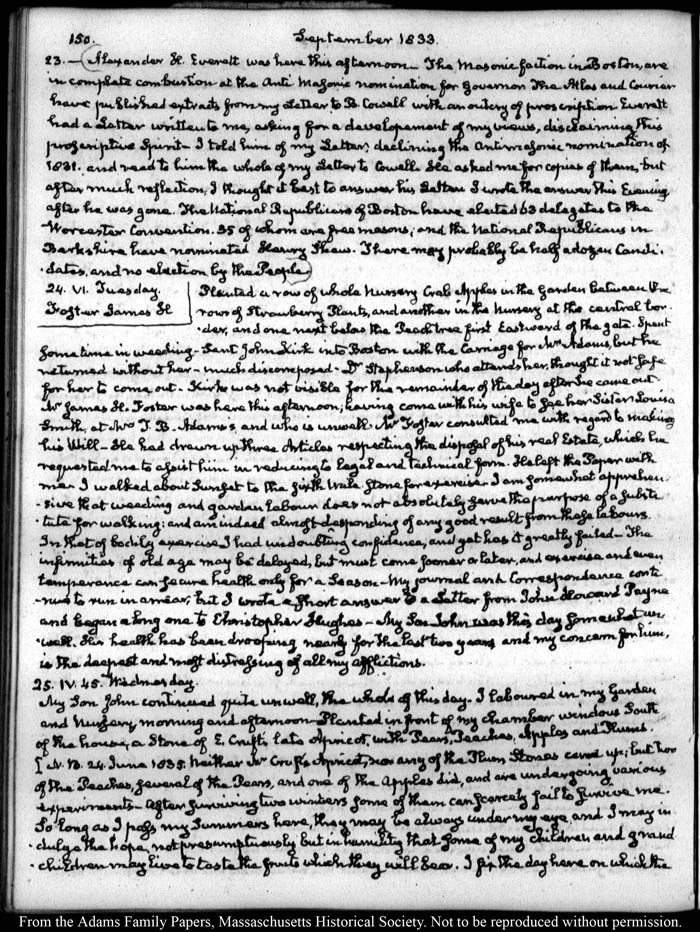 150.
September 1833.
23.— (Alexander H. Everett was here this afternoon— The Masonic faction in Boston, are
in complete combustion at the Anti Masonic nomination for Governor The Atlas and Courier
have published extracts from my Letter to B. Cowell with an outcry of proscription Everett
had a Letter written to me, asking for a developement of my views, disclaiming this
proscriptive Spirit— I told him of my Letter, declining the Antimasonic nomination of
1831. and read to him the whole of my Letter to Cowell. He asked me for copies of them, but
after much reflection, I thought it best to answer his Letter. I wrote the answer this Evening
after he was gone. The National Republicans of Boston have elected 63 delegates to the
Worcester Convention. 35 of whom are free masons, and the National Republicans in
Berkshire have nominated Henry Shaw. There may probably be half a dozen Candi-
-dates, and no election by the People)
24. VI. Tuesday.
Foster James H
Planted a row of whole Nursery Crab Apples in the Garden between the
rows of Strawberry Plants, and another in the Nursery at the central bor-
-der, and one next below the Peach tree first Eastward of the gate. Spent
some time in weeding— Sent John Kirk into Boston with the Carriage for Mrs Adams, but he
returned without her— much discomposed— Dr Stephenson who attends her, thought it not safe
for her to come out— Kirke was not visible for the remainder of the day after he came out
Mr James H. Foster was here this afternoon, having come with his wife to see her Sister Louisa
Smith, at Mrs T. B. Adams's, and who is unwell. Mr Foster consulted me with regard to making
his Will— He had drawn up three Articles respecting the disposal of his real Estate, which he
requested me to assist him in reducing to legal and technical form. He left the Paper with
me. I walked about Sunset to the sixth Mile Stone for exercise. I am somewhat apprehen-
-sive that weeding and garden labour does not absolutely serve the purpose of a substi-
-tute for walking: and am indeed almost desponding of any good result from those labours.
In that of bodily exercise I had undoubting confidence, and yet has it greatly failed— The
infirmities of old age may be delayed, but must come sooner or later, and exercise and even
temperance can secure health only for a Season— My journal and Correspondence conti-
-nue to run in arrear, but I wrote a short answer to a Letter from John Howard Payne
and began a long one to Christopher Hughes— My Son John was this day somewhat un-
-well. His health has been drooping nearly for the last two years and my concern for him,
is the deepest and most distressing of all my afflictions.
25. IV. 45. Wednesday.
My Son John continued quite unwell, the whole of this day. I laboured in my Garden
and Nursery, morning and afternoon— Planted in front of my chamber windows South
of the house, a Stone of E. Cruft's late Apricot, with Pears, Peaches, Apples and Plums.
[N. B. 24. June 1835. Neither Mr Cruft's Apricot, nor any of the Plum Stones came up; but two
of the Peaches, several of the Pears, and one of the Apples did, and are undergoing various
experiments— After surviving two winters some of them can scarcely fail to survive me.
So long as I pass my Summers here, they may be always under my eye, and I may in-
-dulge the hope, not presumptuously but in humility that some of my children and grand
-children may live to taste the fruits which they will bear. I fix the day here on which the
From the Adams Family Papers, Massachusetts Historical Society. Not to be reproduced without permission.